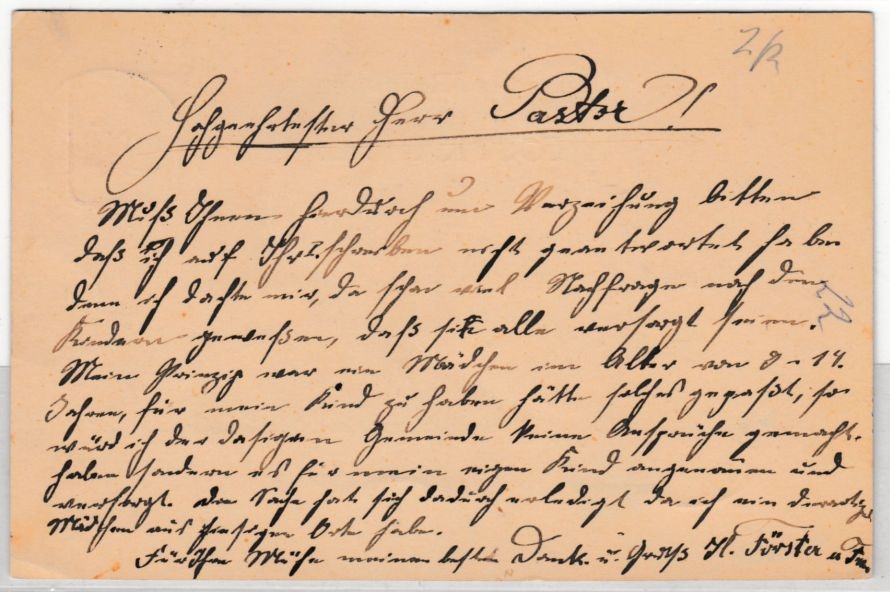 2/2
Hochgeehrtester Herr Pastor!
Muß Ihnen hierdurch um Verzeihung bitten
daß ich auf Ihr schreiben nicht geantwortet haben
denn ich dachte mir, da schon viel Nachfrage nach den
22
Kindern gewesen, daß sie alle versorgt seien.
Mein Prinzip war ein Mädchen im Alter von 8 - 14.
Jahren, für mein Kind zu haben hätte solches gepaßt, so
würd ich der dasigen Gemeinde keine Ansprüche gemacht
haben sondern es für mein eigen Kind angenomen und
versorgt. Die Sache hat sich dadurch erledigt da ich ein derartiges
Mädchen aus hiesigen Orte habe.
Für Ihre Mühe meinen besten Dank. u. Gruß H. Förster u Frau